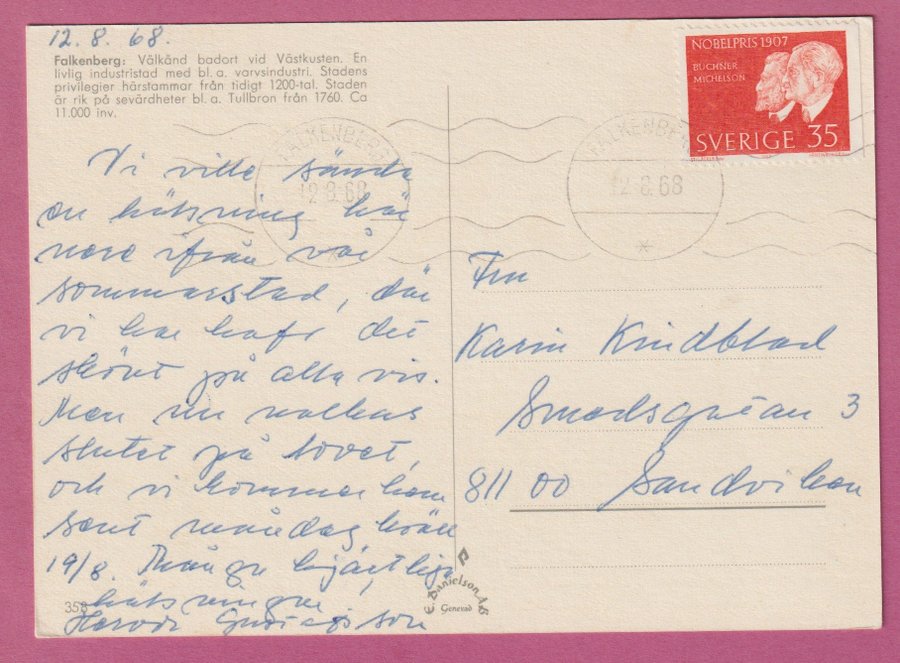 12.8.68.
Falkenberg: Välkänd badort vid Västkusten. En
livlig industristad med bl. a. varvsindustri. Stadens
privilegier härstammar från tidigt 1200-tal. Staden
är rik på sevärdheter bl. a. Tullbron från 1760. Ca
11.000 inv.
NOBELPRIS 1907
BUCHNER
MICHELSON
SVERIGE 35
FALKENBERG
12.8.68
FALKENBERG
12.8.68
Vi ville sända
en hälsning här
nere ifrån vår
sommarstad, där
vi har haft det
skönt på alla vis.
Men nu nalkas
slutet på lovet,
och vi kommer hem
sent måndag kväll
19/8. Många hjärtliga
hälsningar
Gustafsson
Fru
Karin Kindblad
Smedsgatan 3
811 00 Sandviken
358
E. Danielson AB
Genevad